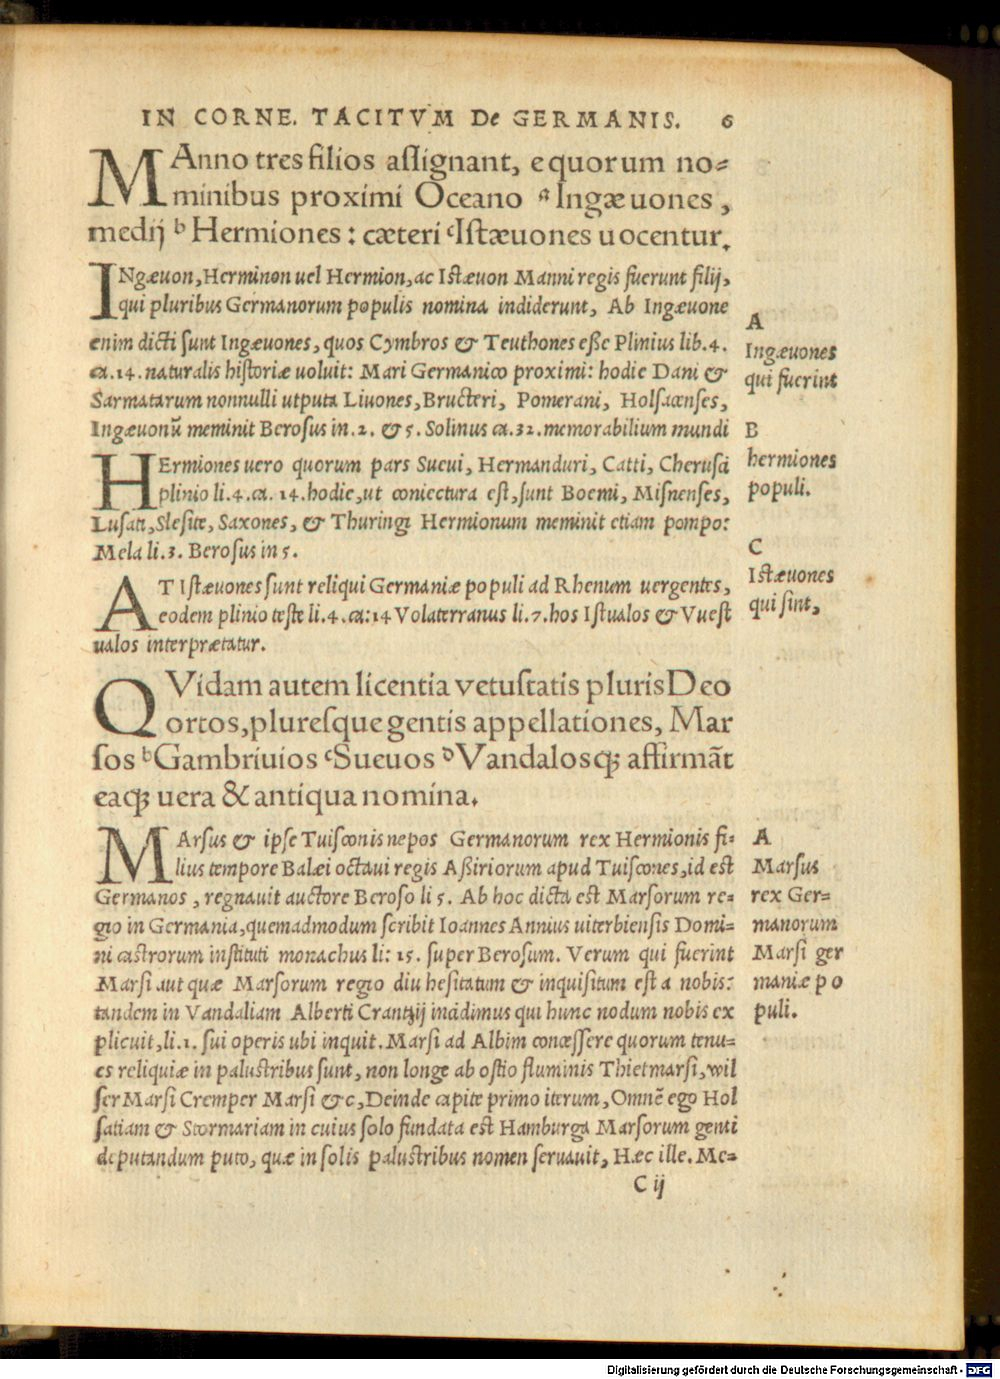 IN CORNE. TACITVM De GERMANIS. 6
MAnno tres filios aſſignant, e quorum no⸗
minibus proximi Oceano ᵃ Ingæuones,
medij ᵇ Hermiones: cæteri ᶜIſtæuones uocentur.
INgæuon, Herminon uel Hermion, ac Iſtæuon Manni regis fuerunt filij,
qui pluribus Germanorum populis nomina indiderunt, Ab Ingæuone
enim dicti ſunt Ingæuones, quos Cymbros & Teuthones eße Plinius lib.4.
ca.14. naturalis hiſtoriæ uoluit: Mari Germanico proximi: hodie Dani &
Sarmatarum nonnulli utputa Liuones, Bructeri, Pomerani, Holſacenſes,
Ingæuonũ meminit Beroſus in.2. & 5. Solinus ca.32. memorabilium mundi
A
Ingæuones
qui fuerint
HErmiones uero quorum pars Sueui, Hermanduri, Catti, Cheruſci
plinio li.4.ca. 14. hodie, ut coniectura eſt, ſunt Boemi, Miſnenſes,
Luſati, Sleſite, Saxones, & Thuringi Hermionum meminit etiam pompo:
Mela li.3. Beroſus in 5.
B
hermiones
populi.
AT Iſtæuones ſunt reliqui Germaniæ populi ad Rhenum uergentes,
eodem plinio teſte li.4.ca:14 Volaterranus li.7. hos Iſtualos & Vueſt
ualos interprætatur.
C
Iſtæuones
qui ſint,
QVidam autem licentia vetuſtatis pluris Deo
ortos, plureſque gentis appellationes, Mar
ſos ᵇGambriuios ᶜSueuos ᴰVandalosq; affirmãt
eaq; uera & antiqua nomina.
MArſus & ipſe Tuiſconis nepos Germanorum rex Hermionis fi⸗
lius tempore Balæi octaui regis Aßiriorum apud Tuiſcones, id eſt
Germanos, regnauit auctore Beroſo li 5. Ab hoc dicta eſt Marſorum re⸗
gio in Germania, quemadmodum ſcribit Ioannes Annius uiterbienſis Domi⸗
ni caſtrorum inſtituti monachus li: 15. ſuper Beroſum. Verum qui fuerint
Marſi aut quæ Marſorum regio diu heſitatum & inquiſitum eſt a nobis:
tandem in Vandaliam Alberti Crantzij incidimus qui hunc nodum nobis ex
plicuit, li.1. ſui operis ubi inquit. Marſi ad Albim conceſſere quorum tenu⸗
es reliquiæ in paluſtribus ſunt, non longe ab oſtio fluminis Thietmarſi, wil
ſer Marſi Cremper Marſi &c, Deinde capite primo iterum, Omnẽ ego Hol
ſatiam & Stormariam in cuius ſolo fundata eſt Hamburga Marſorum genti
deputandum puto, quæ in ſolis paluſtribus nomen ſeruauit, Hæc ille. Me⸗
A
Marſus
rex Ger⸗
manorum
Marſi ger
maniæ po
puli.
C ij
Digitalisierung gefördert durch die Deutsche Forschungsgemeinschaft - DFG